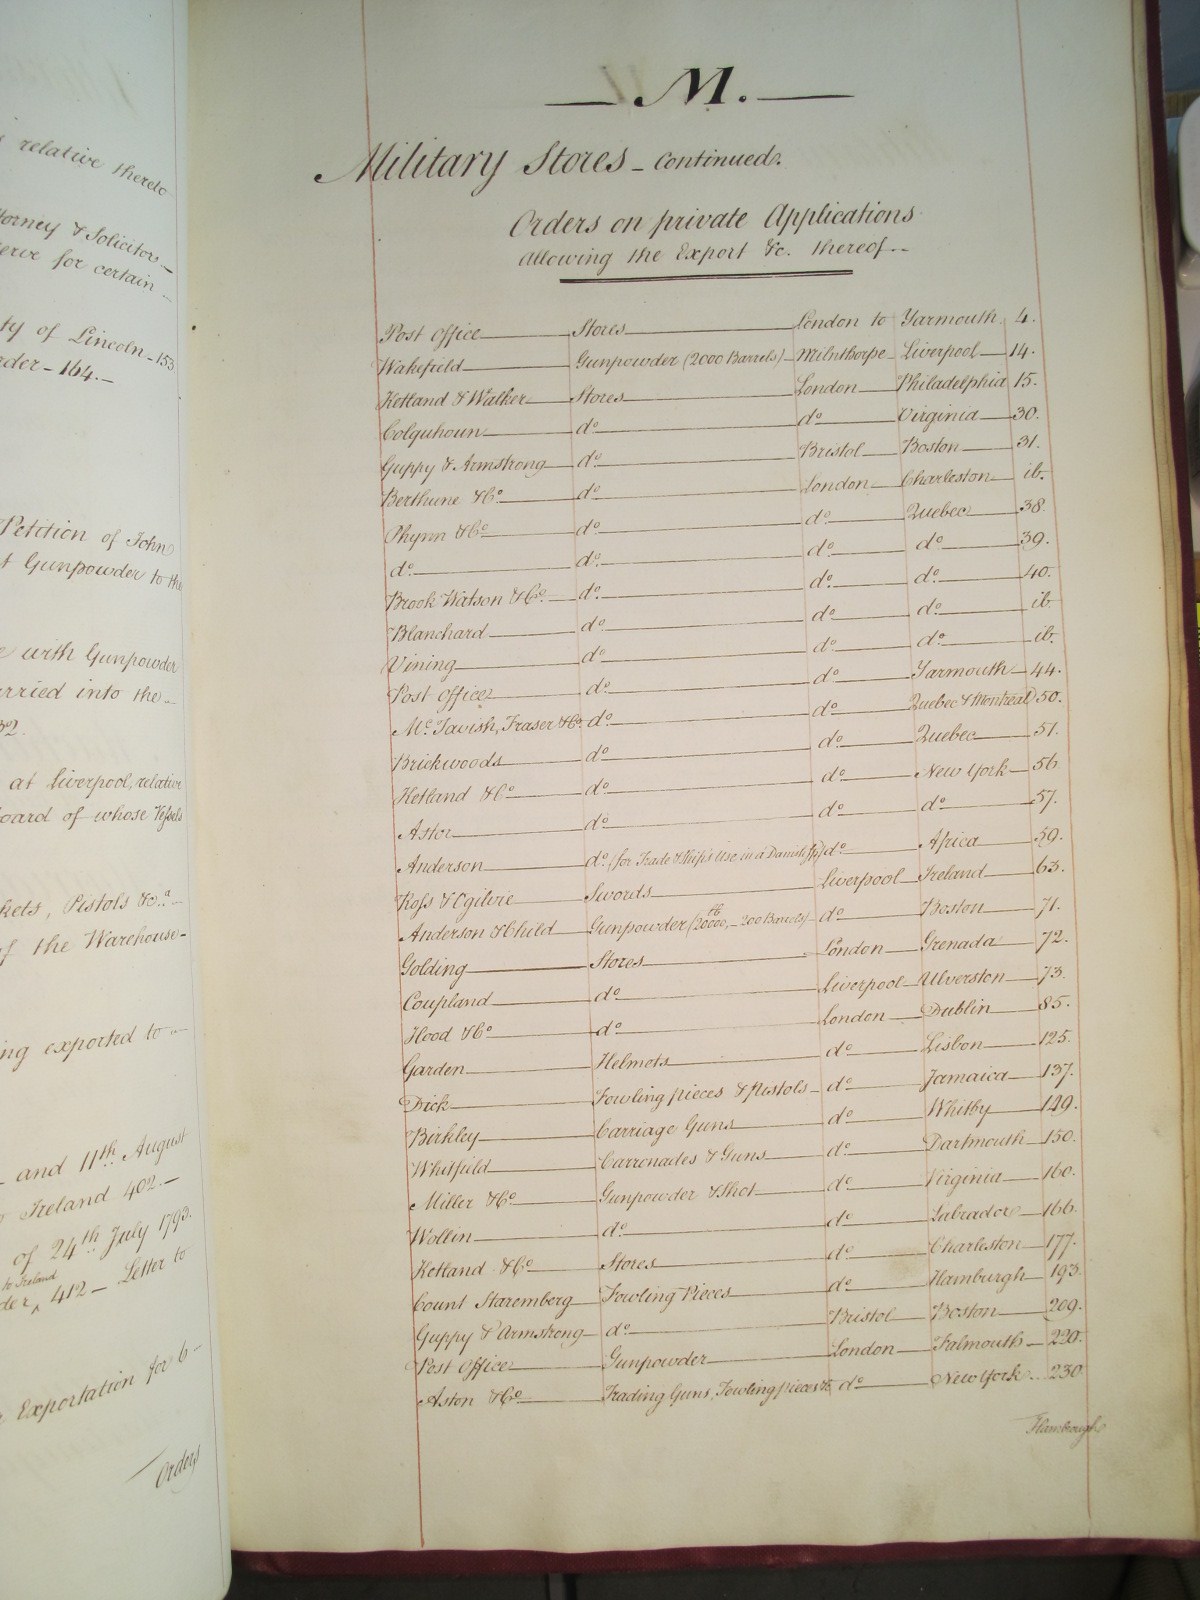 relative thereto
torney & Solicitors
serve for certain
ty of Lincoln - 153
rder - 164. -
Petition of John
t Gunpowder to the
with Gunpowder
rried into the
at Liverpool, relative
oard of whose Vessels
kets, Pistols &c.a
of the Warehouse-
ing exported to
- and 11th August
Ireland 402. -
of 24th July 1793.
to Ireland
der, 412 - Letter to
Exportation for 6
Orders
M.
Military Stores - continued.
Orders on private Applications
allowing the Export &c. thereof --
Post Office Stores London to Yarmouth 4.
Wakefield Gunpowder (2000 Barrels) - Milnthorpe - Liverpool 14.
Ketland & Walker Stores London Philadelphia 15.
Colquhoun do do Virginia 30.
Guppy & Armstrong do Bristol Boston 31.
Berthune & Co. do London Charleston ib.
Phynn & Co. do do Quebec 38.
do. do. do do 39.
Brook Watson & Co. do. do do 40.
Blanchard do. do do ib
Vining do. do do. ib.
Post Office do. do Yarmouth 44.
Mc. Tavish, Fraser & Co. do do Quebec & Montreal 50.
Brickwoods do do Quebec 51.
Ketland & Co. do. do New York 56.
Astor do. do do. 57.
Anderson do. (for Trade & Ship's Use in a Danish Sp) do. Africa 59.
Ross & Ogilvie Swords Liverpool Ireland 63.
Anderson & Child Gunpowder (20000, - 200 Barrels) do Boston 71.
Golding Stores London Grenada 72.
Coupland do. Liverpool Ulverston 73.
Hood & Co. do London Dublin 85.
Garden Helmets do. Lisbon 125.
Dick Fowling pieces & Pistols do. Jamaica 137.
Birkley Carriage Guns do Whitby 149.
Whitfield Carronades & Guns do. Dartmouth 150.
Miller & Co. Gunpowder & Shot do. Virginia 160.
Wollin do. do Labrador 166.
Ketland & Co. Stores do Charleston 177.
Count Staremberg Fowling Pieces do Hamburgh 193.
Guppy & Armstrong do. Bristol Boston 209.
Post Office Gunpowder London Falmouth 220.
Aston & Co. Trading Guns, Fowling pieces &c do New York 230
Flambrough